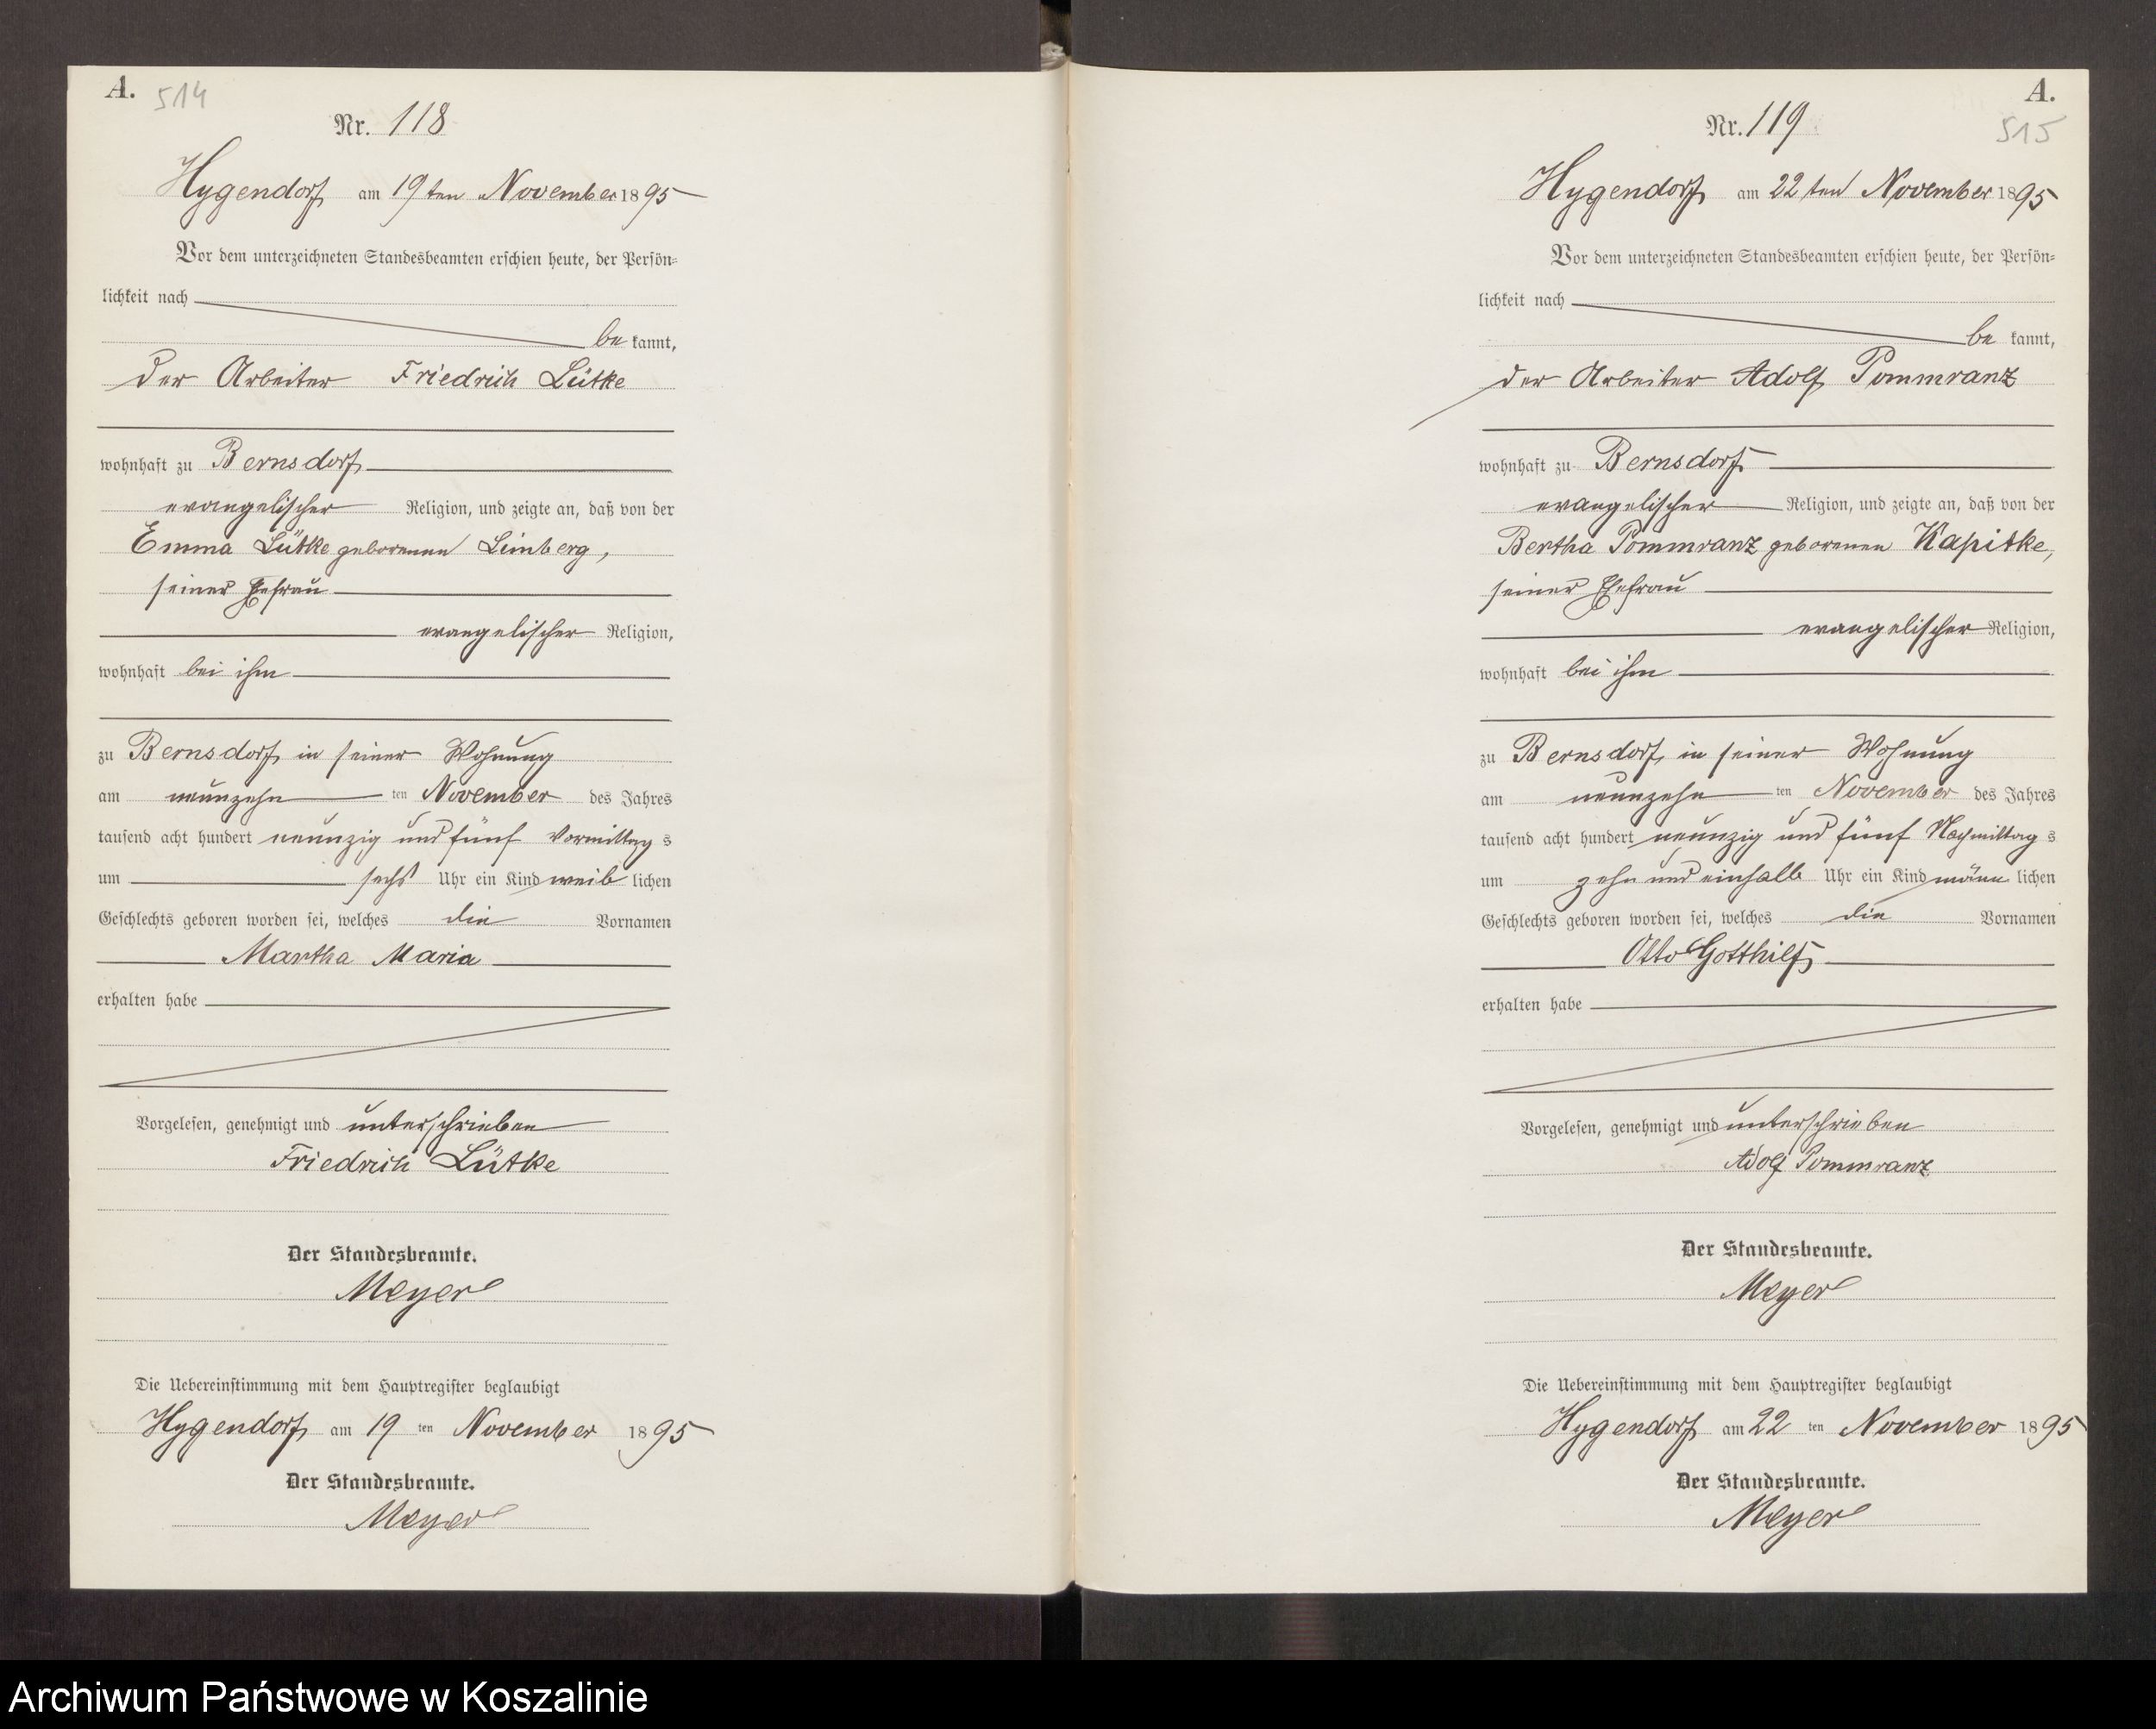 A. 514
Nr. 118
Hygendorf am 19ten November 1895
Vor dem unterzeichneten Standesbeamten erschien heute, der Persön=
lichkeit nach
be kannt,
der Arbeiter Friedrich Lütke
wohnhaft zu Bernsdorf
evangelischer Religion, und zeigte an, daß von der
Emma Lütke geborenen Limberg,
seiner Ehefrau
evangelischer Religion,
wohnhaft bei ihm
zu Bernsdorf, in seiner Wohnung
am neunzehn ten November des Jahres
tausend acht hundert neunzig und fünf Vormittag s
um sechs Uhr ein Kind weib lichen
Geschlechts geboren worden sei, welches die Vornamen
Martha Maria
erhalten habe
Vorgelesen, genehmigt und unterschrieben
Friedrich Lütke
Der Standesbeamte.
Meyer
Die Uebereinstimmung mit dem Hauptregister beglaubigt
Hygendorf, am 19 ten November 1895
Der Standesbeamte.
Meyer
A.
515
Nr. 119
Hygendorf am 22ten November 1895
Vor dem unterzeichneten Standesbeamten erschien heute, der Persön=
lichkeit nach
be kannt,
der Arbeiter Adolf Pommranz
wohnhaft zu Bernsdorf
evangelischer Religion, und zeigte an, daß von der
Bertha Pommranz geborenen Kapitke,
seiner Ehefrau
evangelischer Religion,
wohnhaft bei ihm
zu Bernsdorf, in seiner Wohnung
am neunzehn ten November des Jahres
tausend acht hundert neunzig und fünf Nachmittag s
um zehn und einhalb Uhr ein Kind männ lichen
Geschlechts geboren worden sei, welches die Vornamen
Otto Gotthilf
erhalten habe
Vorgelesen, genehmigt und unterschrieben
Adolf Pommranz
Der Standesbeamte.
Meyer
Die Uebereinstimmung mit dem Hauptregister beglaubigt
Hygendorf am 22 ten November 1895
Der Standesbeamte.
Meyer
Archiwum Państwowe w Koszalinie